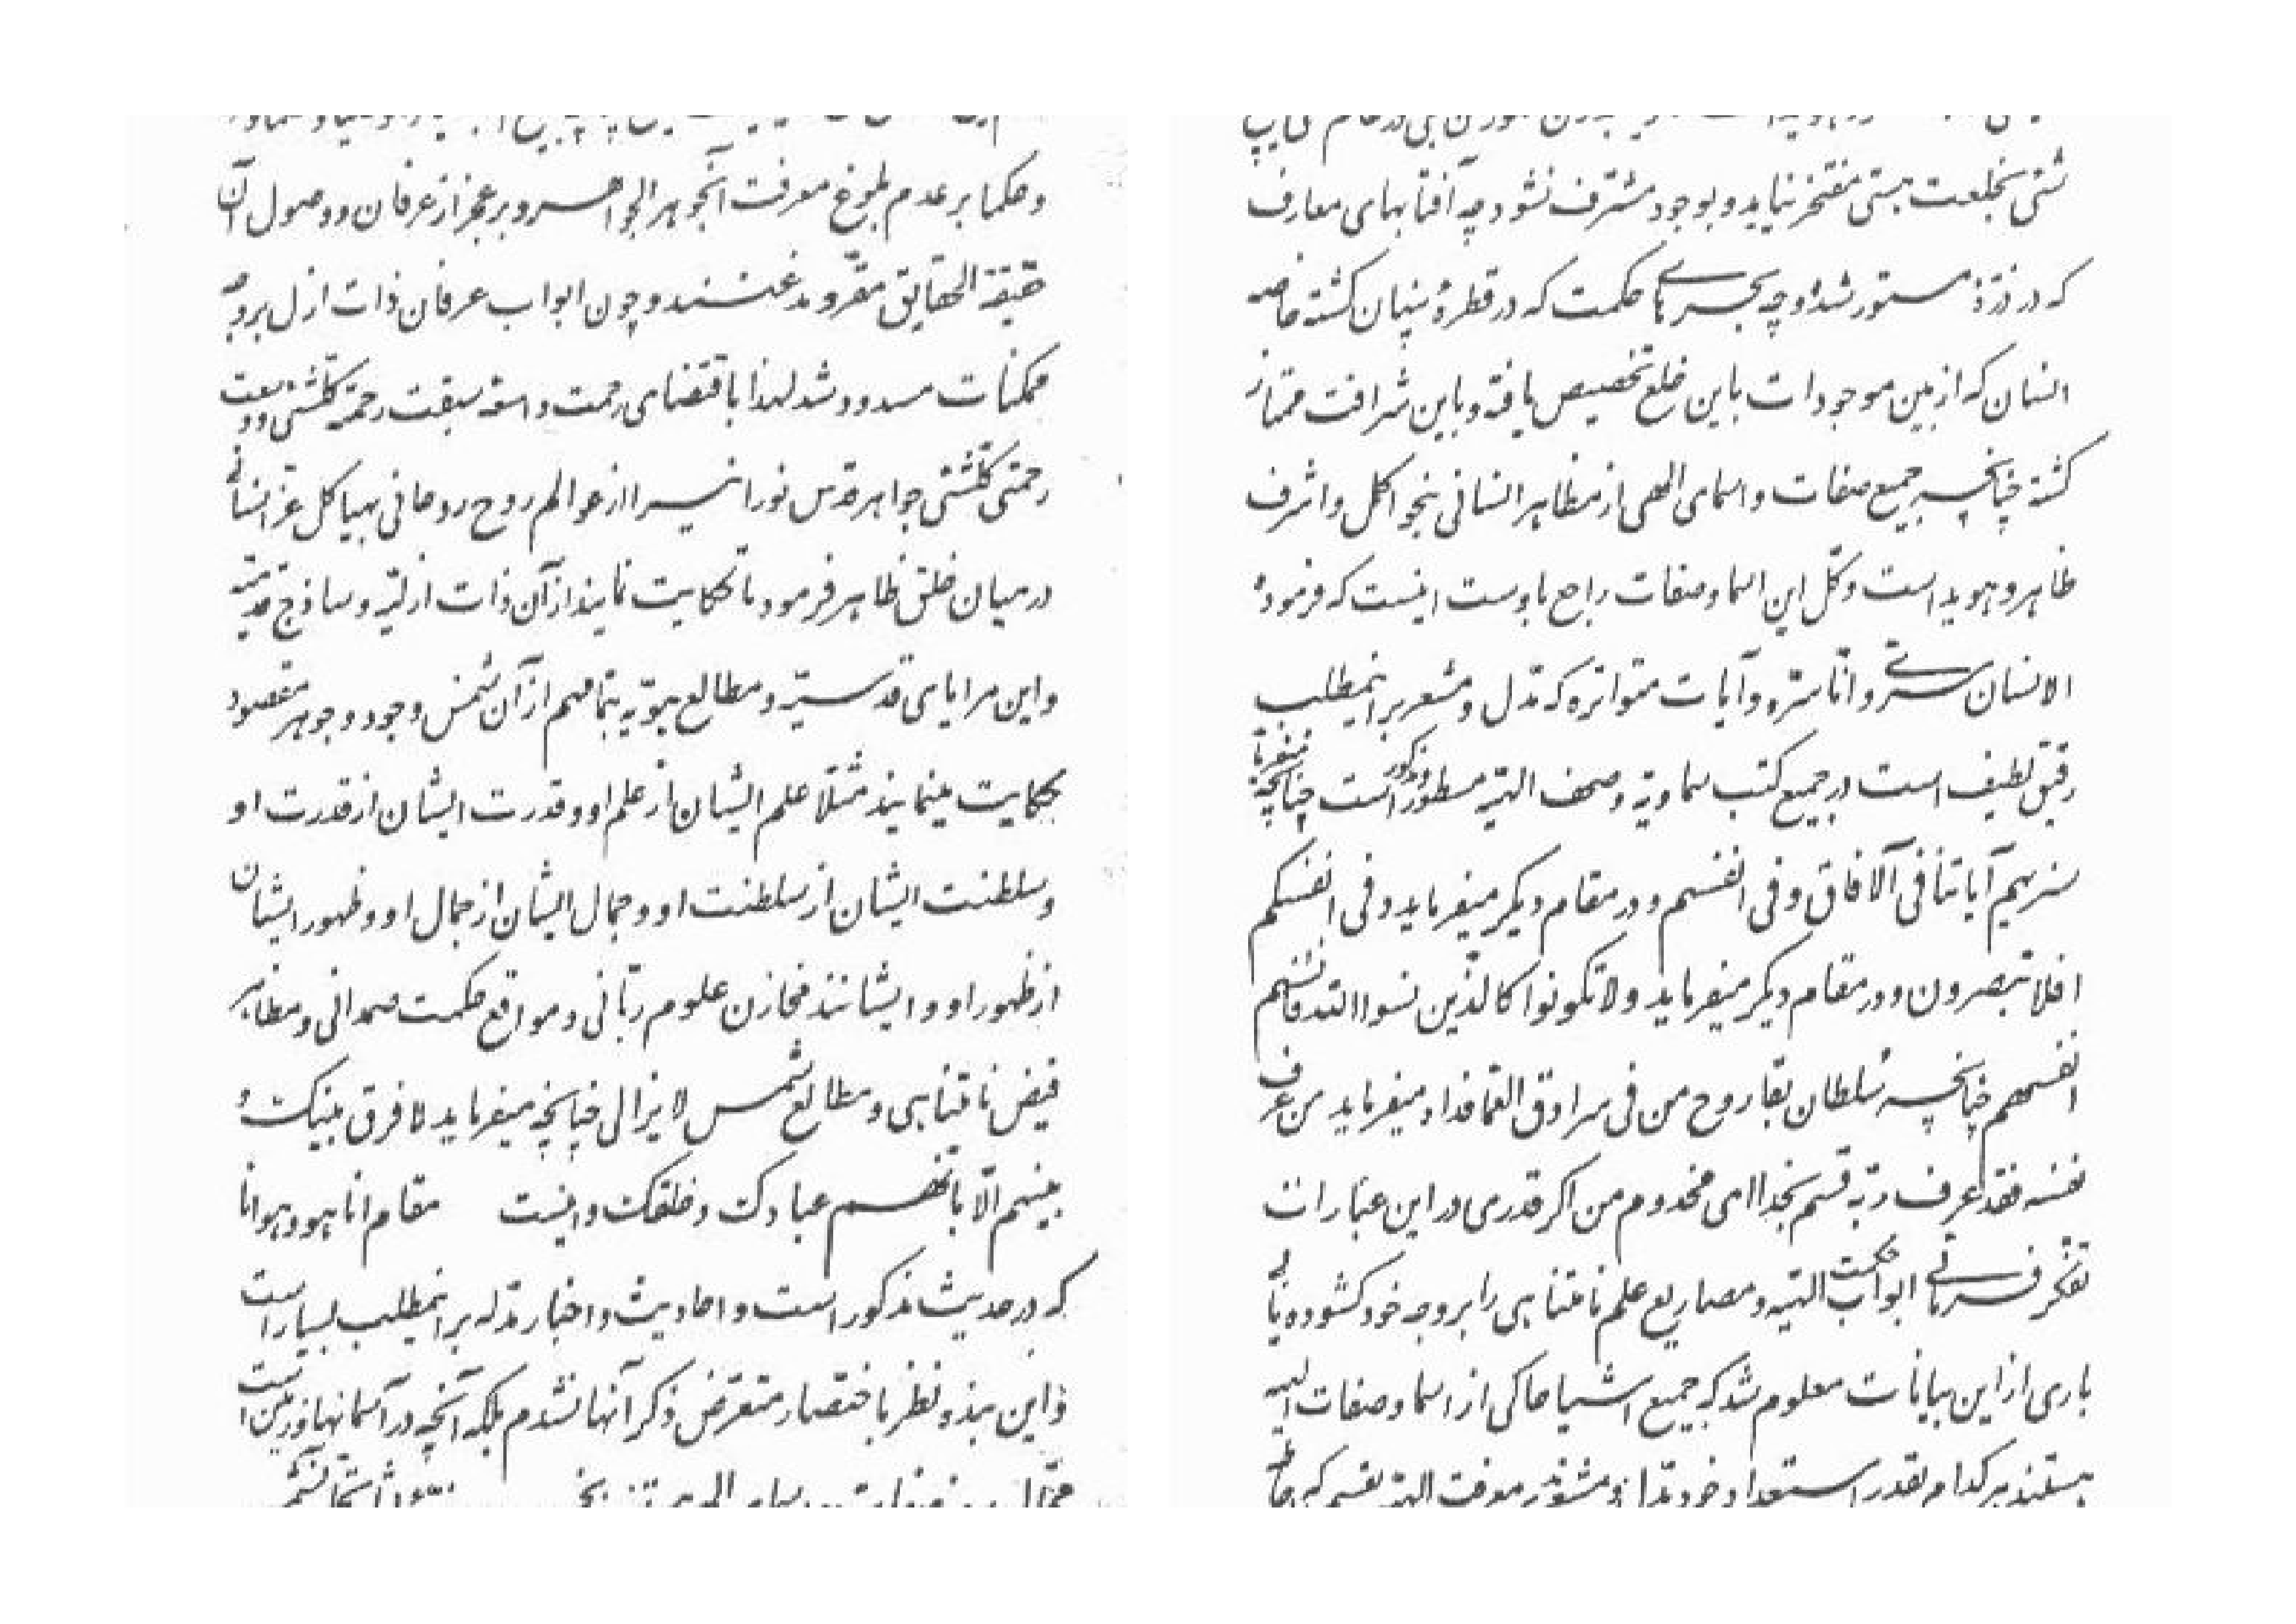 شئی بخلعت هستی مفتخر نیاید و بوجود مشرف نشود چه آفتابهای معارف
که در ذرّهٔ مستور شده و چه بحرهای حکمت که در قطرهٔ پنهان گشته خاصه
انسان که از بین موجودات باین خلع تخصیص یافته و باین شرافت ممتاز
گشته چنانچه جمیع صفات و اسمای الهی از مظاهر انسانی بنحو اکمل و اشرف
ظاهر و هویدا است و کلّ این اسما و صفات راجع باوست اینست که فرموده
الانسان سرّی و انا سرّه و آیات متواتره که مدلّ و مشعر بر اینمطلب
رقیق لطیف است در جمیع کتب سماویه و صحف الهیّه مسطور و مذکور است چنانچه میفرماید
سنریهم آیاتنا فی الآفاق و فی انفسهم و در مقام دیگر میفرماید و فی انفسکم
افلا تبصرون و در مقام دیگر میفرماید و لا تکونوا کالّذین نسوا الله فانسیهم
انفسهم چنانچه سلطان بقا روح من فی سرادق العما فداه میفرماید من عرف
نفسه فقد عرف ربّه قسم بخدا ای مخدوم من اگر قدری در این عبارات
تفکّر فرمائی ابواب حکمت الهیّه و مصاریع علم نامتناهی را بر وجه خود گشوده یابی
باری از این بیانات معلوم شد که جمیع اشیا حاکی از اسما و صفات الهیه
هستند هر کدام بقدر استعداد خود مدلّ و مشعرند بر معرفت الهیّه بقسمی که
و حکما بر عدم بلوغ معرفت آنجوهر الجواهر و بر عجز از عرفان و وصول آن
حقیقة الحقایق مقرّ و مذعنند و چون ابواب عرفان ذات ازل بر وجه
ممکنات مسدود شد لهذا باقتضای رحمت واسعه سبقت رحمته کلّشئی و وسعت
رحمتی کلّشئی جواهر قدس نورانی را از عوالم روح روحانی بهیاکل عزّ انسانی
در میان خلق ظاهر فرمود تا حکایت نمایند از آن ذات ازلیّه و ساذج قدمیّه
و این مرایای قدسیّه و مطالع هویّه بتمامهم از آن شمس وجود و جوهر مقصود
حکایت مینمایند مثلاً علم ایشان از علم او و قدرت ایشان از قدرت او
و سلطنت ایشان از سلطنت او و جمال ایشان از جمال او و ظهور ایشان
از ظهور او و ایشانند مخازن علوم ربّانی و مواقع حکمت صمدانی و مظاهر
فیض نامتناهی و مطالع شمس لایزال چنانچه میفرماید لا فرق بینک و
بینهم الّا بانّهم عبادک و خلقک و اینست مقام انا هو و هو انا
که در حدیث مذکور است و احادیث و اخبار مدلّه بر اینمطلب بسیار است
و این بنده نظر باختصار متعرّض ذکر آنها نشدم بلکه آنچه در آسمانها و زمین است